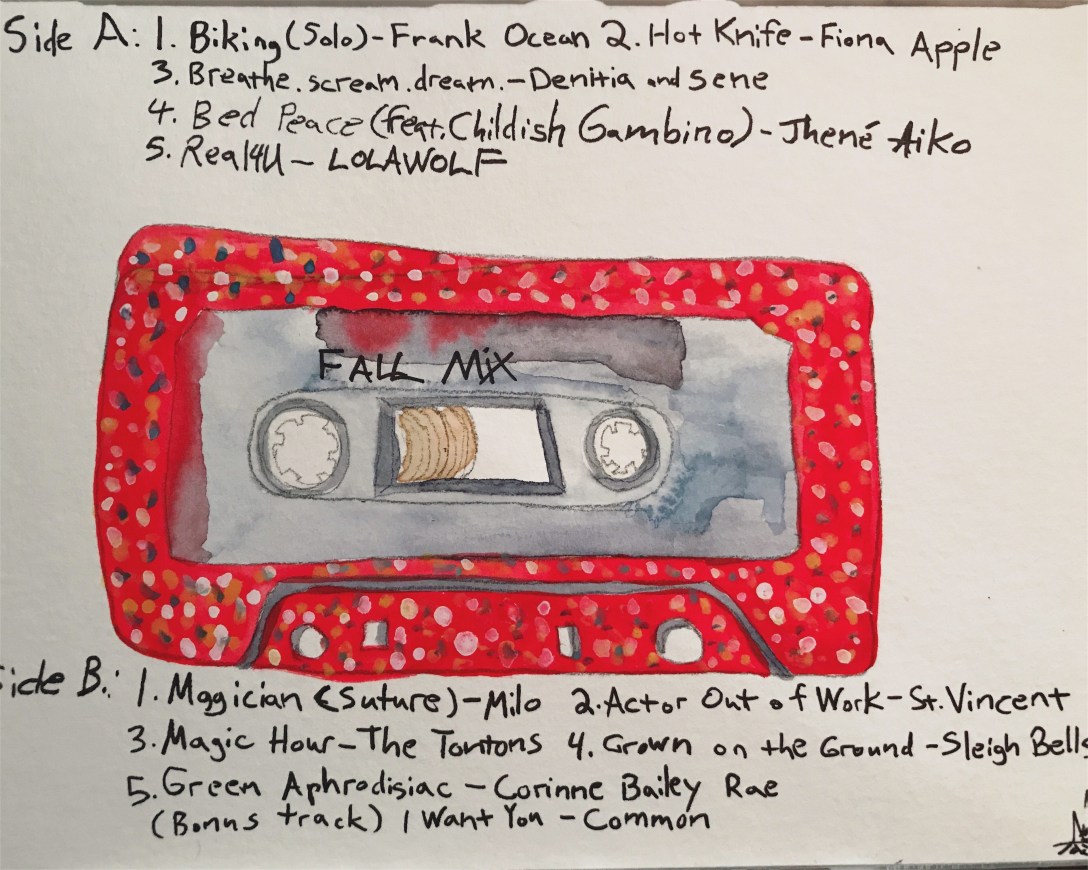 Side A: 1. Biking (Solo) - Frank Ocean 2. Hot Knife - Fiona Apple
3. Breathe. scream. dream. - Denitia and Sene
4. Bed Peace (feat. Childish Gambino) - Jhené Aiko
5. Real4U ~ LOLAWOLF
FALL MiX
ide B.: 1. Magician (Suture) - Milo 2. Actor Out of Work - St. Vincent
3. Magic Hour - The Tontons 4. Grown on the Ground - Sleigh Bells
5. Green Aphrodisiac - Corinne Bailey Rae
(Bonus track) I Want You - Common